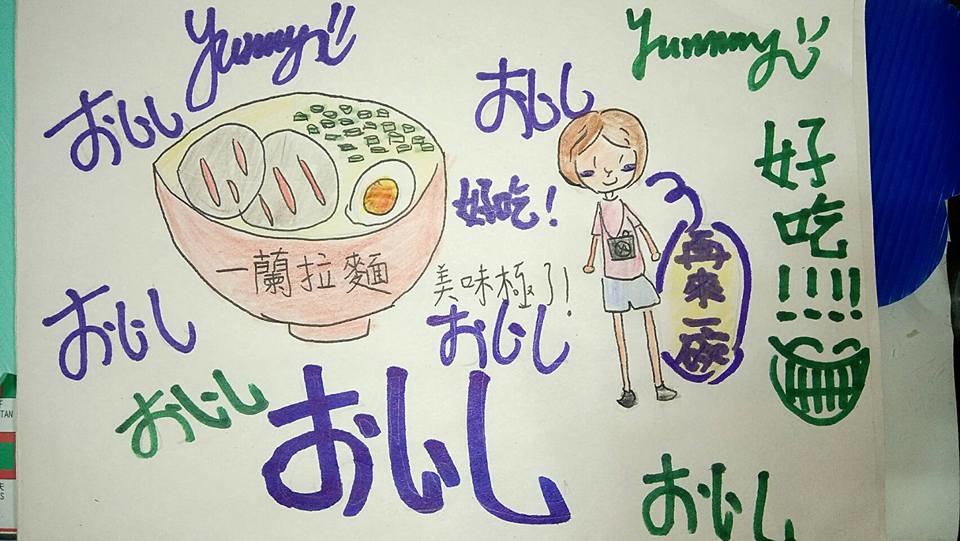 Yummy
Yummy
おいし
おいし
好吃!!!!
好吃!
一蘭拉麵
美味極了!
再來一碗
おいし
おいし
おいし
おいし
おいし
TAN